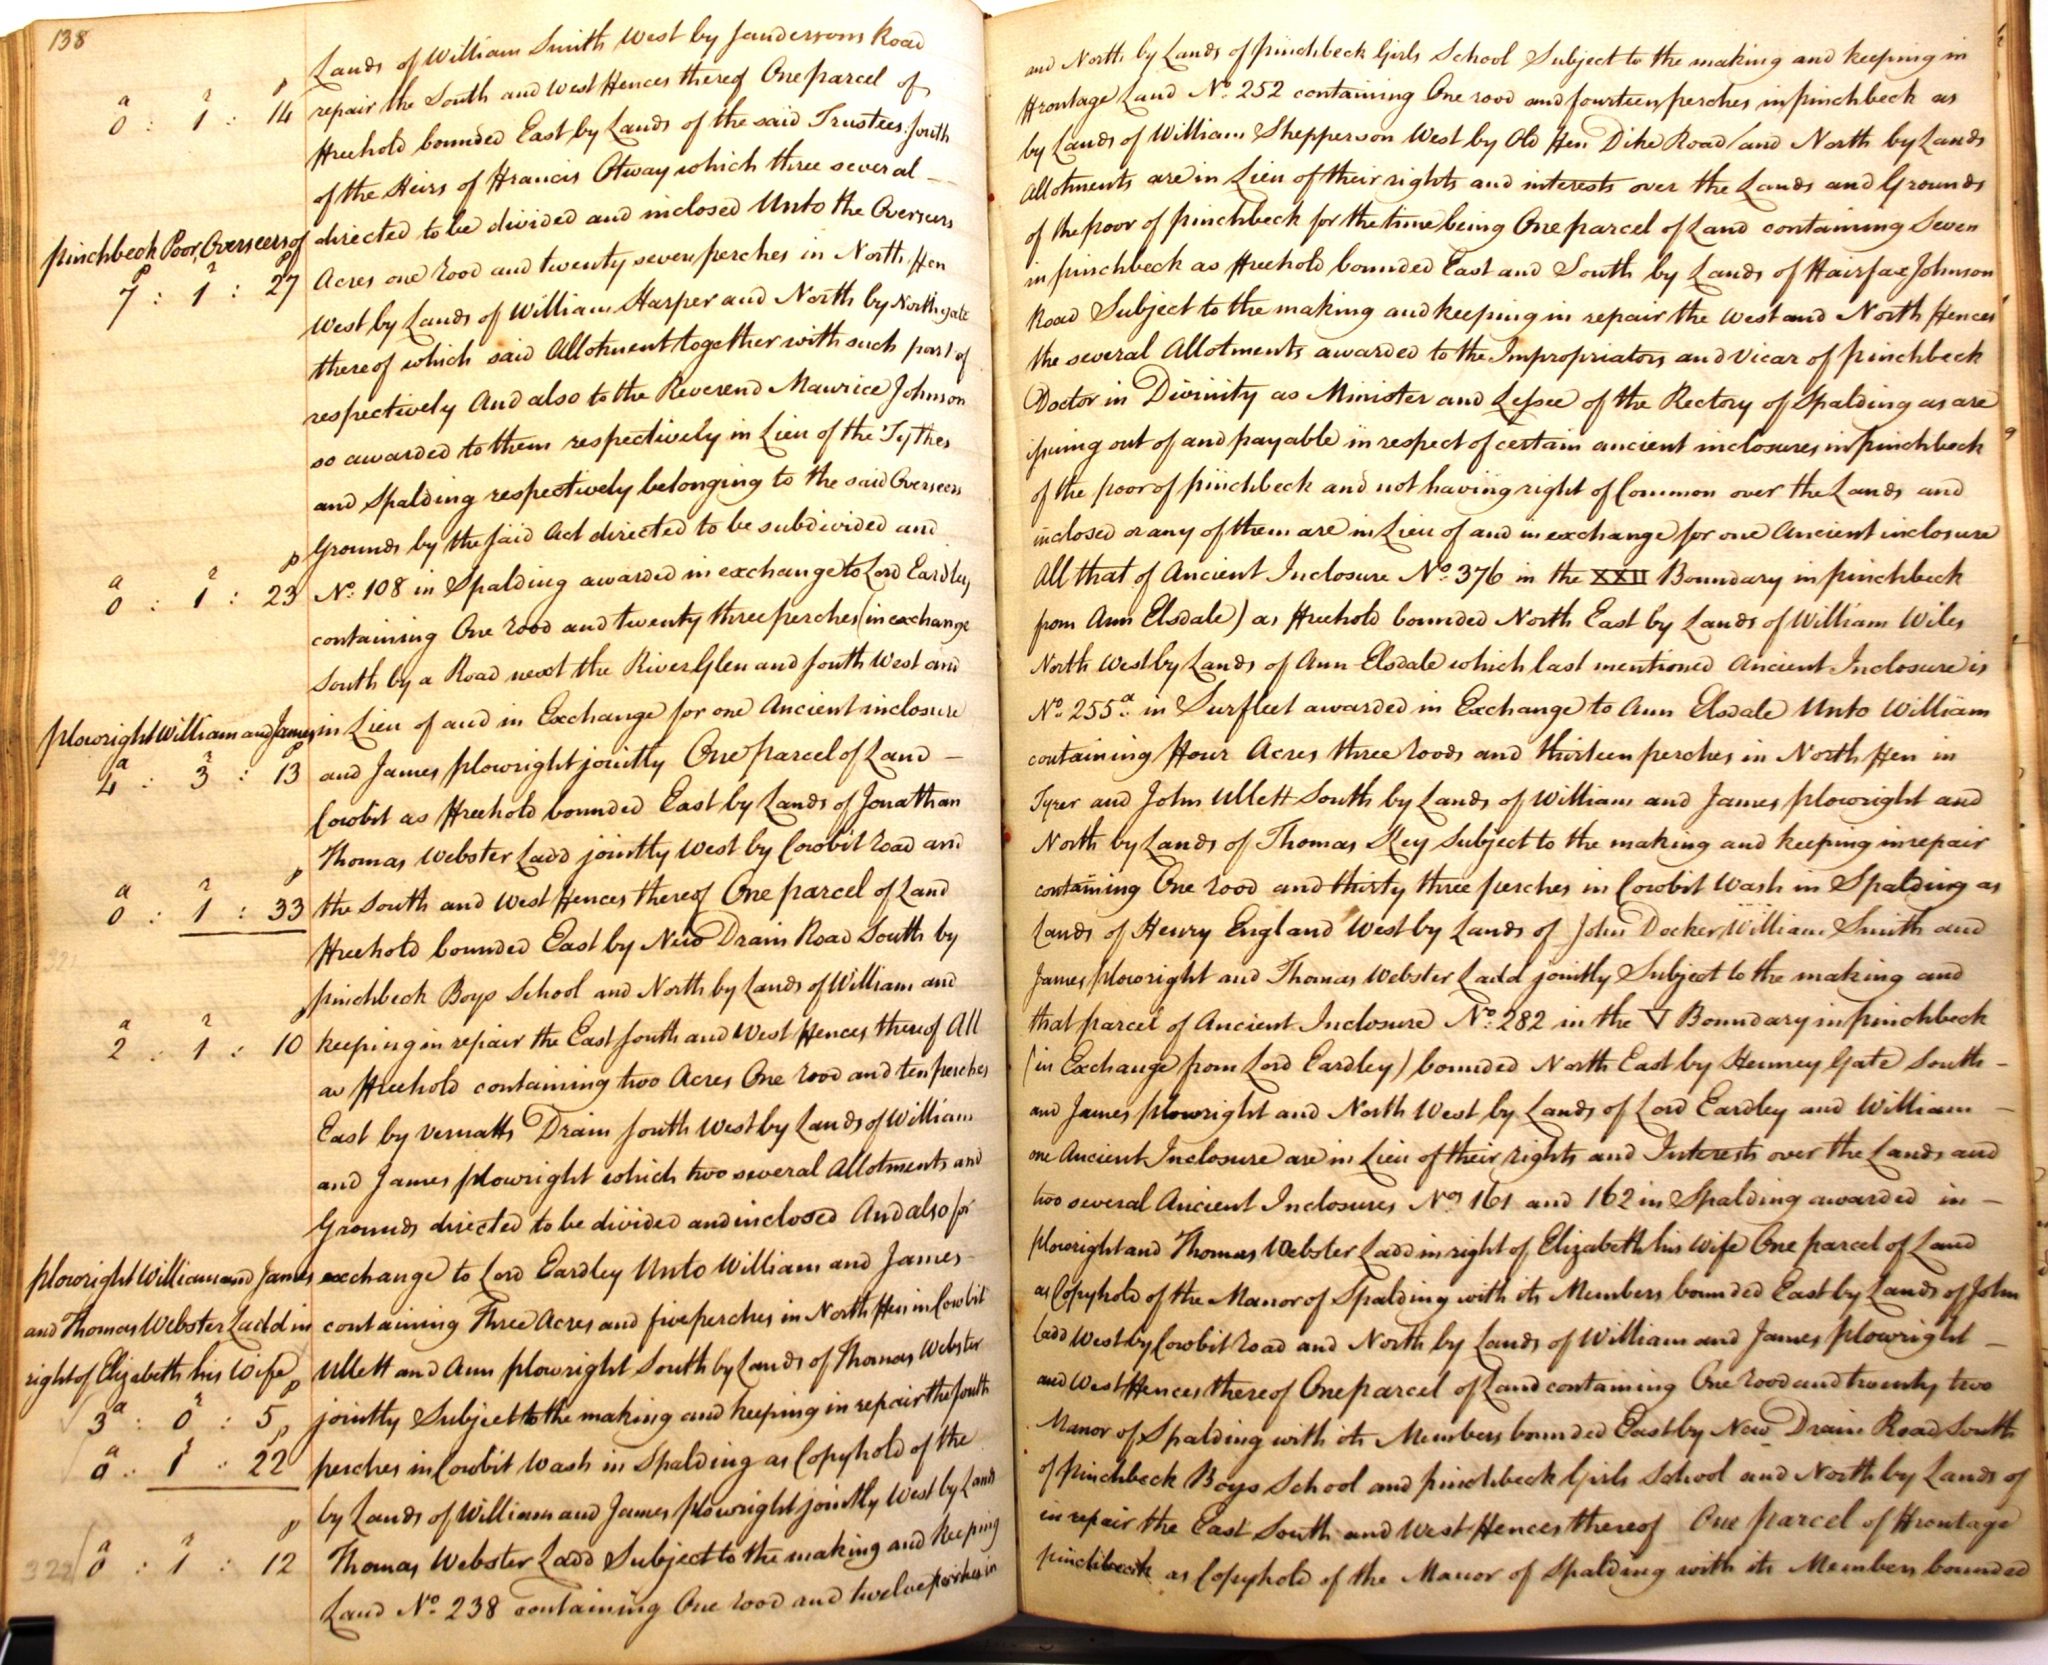 138
Lands of William Smith West by Sandersons Road and North by Lands of Pinchbeck Girls School Subject to the making and keeping in
a r p
0 : 1 : 14 repair the South and West Fences thereof One parcel of Frontage Land No. 252 containing One rood and fourteen perches in Pinchbeck as
Freehold bounded East by Lands of the said Trustees South by Lands of William Shepperson West by Old Fen Dike Road and North by Lands
of the Heirs of Francis Otway which three several — Allotments are in Lieu of their rights and interests over the Lands and Grounds
Pinchbeck Poor, Overseers of directed to be divided and inclosed Unto the Overseers of the poor of Pinchbeck for the time being One parcel of Land containing Seven
a r p
7 : 1 : 27 Acres one rood and twenty seven perches in North Fen in Pinchbeck as Freehold bounded East and South by Lands of Fairfax Johnson
West by Lands of William Harper and North by Northgate Road Subject to the making and keeping in repair the West and North Fences
thereof which said Allotment together with such part of the several Allotments awarded to the Impropriators and Vicar of Pinchbeck
respectively And also to the Reverend Maurice Johnson Doctor in Divinity as Minister and Lessee of the Rectory of Spalding as are
so awarded to them respectively in Lieu of the Tythes issuing out of and payable in respect of certain ancient inclosures in Pinchbeck
and Spalding respectively belonging to the said Overseers of the poor of Pinchbeck and not having right of Common over the Lands and
Grounds by the said Act directed to be subdivided and inclosed or any of them are in Lieu of and in exchange for one Ancient inclosure
a r p
0 : 1 : 23 No. 108 in Spalding awarded in exchange to Lord Eardley All that of Ancient Inclosure No. 376 in the XXII Boundary in Pinchbeck
containing One rood and twenty three perches (in exchange from Ann Elsdale) as Freehold bounded North East by Lands of William Wiles
South by a Road next the River Glen and South West and North West by Lands of Ann Elsdale which last mentioned Ancient Inclosure is
Plowright William and James in Lieu of and in Exchange for one Ancient inclosure No. 255a. in Surfleet awarded in Exchange to Ann Elsdale Unto William
a r p
4 : 3 : 13 and James Plowright jointly One parcel of Land — containing Four Acres three roods and thirteen perches in North Fen in
Cowbit as Freehold bounded East by Lands of Jonathan Tyrer and John Ullett South by Lands of William and James Plowright and
Thomas Webster Ladd jointly West by Cowbit road and North by Lands of Thomas Key Subject to the making and keeping in repair
a r p
0 : 1 : 33 the South and West Fences thereof One parcel of Land containing One rood and thirty three perches in Cowbit Wash in Spalding as
Freehold bounded East by New Drain Road South by Lands of Henry England West by Lands of John Docker, William Smith and
Pinchbeck Boys School and North by Lands of William and James Plowright and Thomas Webster Ladd jointly Subject to the making and
a r p
2 : 1 : 10 keeping in repair the East South and West Fences thereof All that parcel of Ancient Inclosure No. 282 in the V Boundary in Pinchbeck
as Freehold containing two Acres One rood and ten perches (in Exchange from Lord Eardley) bounded North East by Henney Gate South –
East by Vernatts Drain South West by Lands of William and James Plowright and North West by Lands of Lord Eardley and William –
and James Plowright which two several Allotments and one Ancient Inclosure are in Lieu of their rights and Interests over the Lands and
Grounds directed to be divided and inclosed And also for two several Ancient Inclosures Nos. 161 and 162 in Spalding awarded in –
Plowright William and James exchange to Lord Eardley Unto William and James Plowright and Thomas Webster Ladd in right of Elizabeth his Wife One parcel of Land
and Thomas Webster Ladd in containing Three Acres and five perches in North Fen in Cowbit as Copyhold of the Manor of Spalding with its Members bounded East by Lands of John
right of Elizabeth his Wife Ullett and Ann Plowright South by Lands of Thomas Webster Ladd West by Cowbit road and North by Lands of William and James Plowright –
a r p
3 : 0 : 5 jointly Subject to the making and keeping in repair the South and West Fences thereof One parcel of Land containing One rood and twenty two
a r p
0 : 1 : 22 perches in Cowbit Wash in Spalding as Copyhold of the Manor of Spalding with its Members bounded East by New Drain Road South
by Lands of William and James Plowright jointly West by Lands of Pinchbeck Boys School and Pinchbeck Girls School and North by Lands of
a r p
322 0 : 1 : 12 Thomas Webster Ladd Subject to the making and keeping in repair the East South and West Fences thereof One parcel of Frontage
Land No. 238 containing One rood and twelve perches in Pinchbeck as Copyhold of the Manor of Spalding with its Members bounded